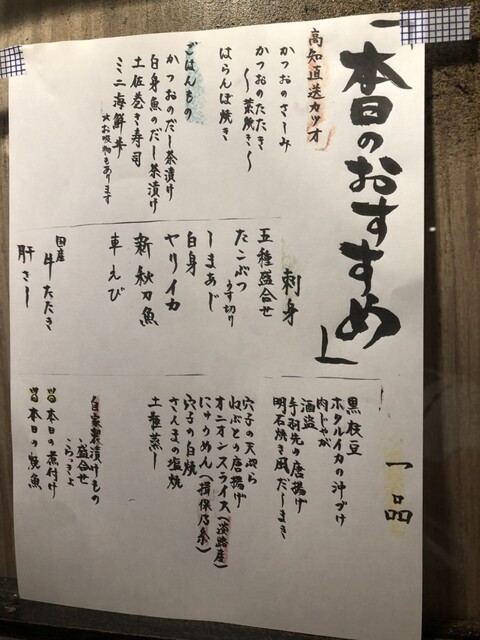 「本日のおすすめ」
高知直送カツオ
かつおのさしみ
かつおのたたき
〜藁焼き〜
はらんぼ焼き
ごはんもの
かつおのだし茶漬け
白身魚のだし茶漬け
土佐巻き寿司
ミニ海鮮丼
※お吸物もあります
刺身
五種盛合せ
たこぶつ
うす切り
しまあじ
白身
ヤリイカ
新秋刀魚
車えび
国産
牛たたき
肝さし
一品
黒枝豆
ホタルイカの沖づけ
肉じゃが
酒盗
手羽先の唐揚げ
明石焼き風だしまき
穴子の天ぷら
ねぶとの唐揚げ
オニオンスライス(淡路産)
にゅうめん(揖保乃糸)
穴子の白焼
さんまの塩焼
土瓶蒸し
自家製漬けもの
盛合せ
らっきょ
本日の煮付け
本日の焼魚